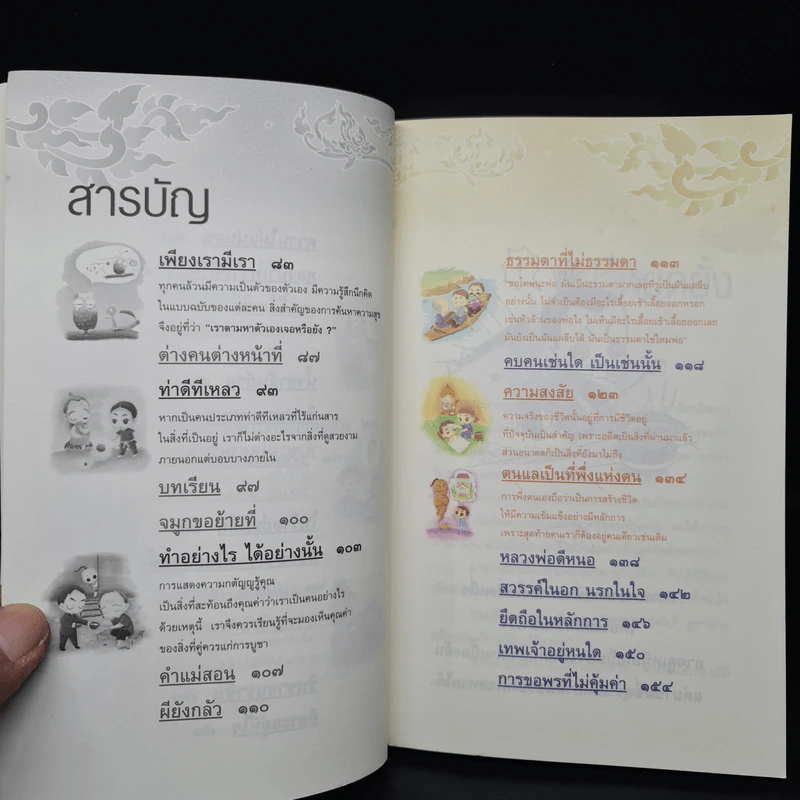 สารบัญ
เพียงเรามีเรา ๘๓
ทุกคนล้วนมีความเป็นตัวของตัวเอง มีความรู้สึกนึกคิด
ในแบบฉบับของแต่ละคน สิ่งสำคัญของการค้นหาความสุข
จึงอยู่ที่ว่า "เราตามหาตัวเองเจอหรือยัง ?"
ต่างคนต่างหน้าที่ ๘๗
ท่าดีทีเหลว ๙๓
หากเป็นคนประเภทท่าดีทีเหลวที่ไร้แก่นสาร
ในสิ่งที่เป็นอยู่ เราก็ไม่ต่างอะไรจากสิ่งที่ดูสวยงาม
ภายนอกแต่บอบบางภายใน
บทเรียน ๙๗
จมูกขอย้ายที่ ๑๐๐
ทำอย่างไร ได้อย่างนั้น ๑๐๓
การแสดงความกตัญญูรู้คุณ
เป็นสิ่งที่สะท้อนถึงคุณค่าว่าเราเป็นคนอย่างไร
ด้วยเหตุนี้ เราจึงควรเรียนรู้ที่จะมองเห็นคุณค่า
ของสิ่งที่คู่ควรแก่การบูชา
คำแม่สอน ๑๐๗
ผียังกลัว ๑๑๐
ธรรมดาที่ไม่ธรรมดา ๑๑๓
"ขอโทษนะพ่อ มันเป็นธรรมดามากเลยที่รูเป็นมันแผล็บ
อย่างนั้น ไม่จำเป็นต้องมีอะไรเลื้อยเข้าเลื้อยออกหรอก
เช่นหัวล้านของพ่อไง ไม่เห็นมีอะไรเลื้อยเข้าเลื้อยออกเลย
มันยังเป็นมันแผล็บได้ มันเป็นธรรมดาใช่ไหมพ่อ"
คบคนเช่นใด เป็นเช่นนั้น ๑๑๘
ความสงสัย ๑๒๓
ความจริงของชีวิตนั้นอยู่ที่การมีชีวิตอยู่
ที่ปัจจุบันเป็นสำคัญ เพราะอดีตเป็นสิ่งที่ผ่านมาแล้ว
ส่วนอนาคตก็เป็นสิ่งที่ยังมาไม่ถึง
ตนแลเป็นที่พึ่งแห่งตน ๑๓๔
การพึ่งตนเองถือว่าเป็นการสร้างชีวิต
ให้มีความเข้มแข็งอย่างมีหลักการ
เพราะสุดท้ายคนเราก็ต้องอยู่คนเดียวเช่นเดิม
หลวงพ่อดีหนอ ๑๓๘
สวรรค์ในอก นรกในใจ ๑๔๒
ยึดถือในหลักการ ๑๔๖
เทพเจ้าอยู่หนใด ๑๕๐
การขอพรที่ไม่คุ้มค่า ๑๕๔